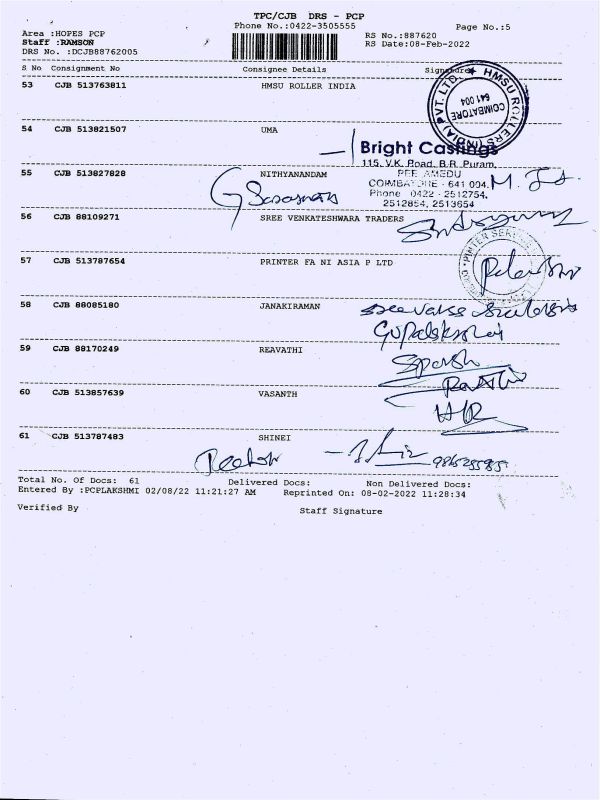 TPC/CJB DRS - PCP
Phone No.:0422-3505555
Page No.:5
Area :HOPES PCP
RS No.:887620
Staff :RAMSON
RS Date:08-Feb-2022
DRS No. :DCJB88762005
S No Consignment No Consignee Details Signature
53 CJB 513763811 HMSU ROLLER INDIA
HMSU ROLLERS (INDIA) PVT. LTD.
COIMBATORE
641 004
54 CJB 513821507 UMA
Bright Castings
115, V.K. Road, B.R. Puram,
55 CJB 513827828 NITHYANANDAM
PEELAMEDU
COIMBATORE - 641 004.
Phone 0422 - 2512754,
2512854, 2513654
56 CJB 88109271 SREE VENKATESHWARA TRADERS
57 CJB 513787654 PRINTER FA NI ASIA P LTD
58 CJB 88085180 JANAKIRAMAN
59 CJB 88170249 REAVATHI
60 CJB 513857639 VASANTH
61 CJB 513787483 SHINEI
Total No. Of Docs: 61 Delivered Docs: Non Delivered Docs:
Entered By :PCPLAKSHMI 02/08/22 11:21:27 AM Reprinted On: 08-02-2022 11:28:34
Verified By Staff Signature